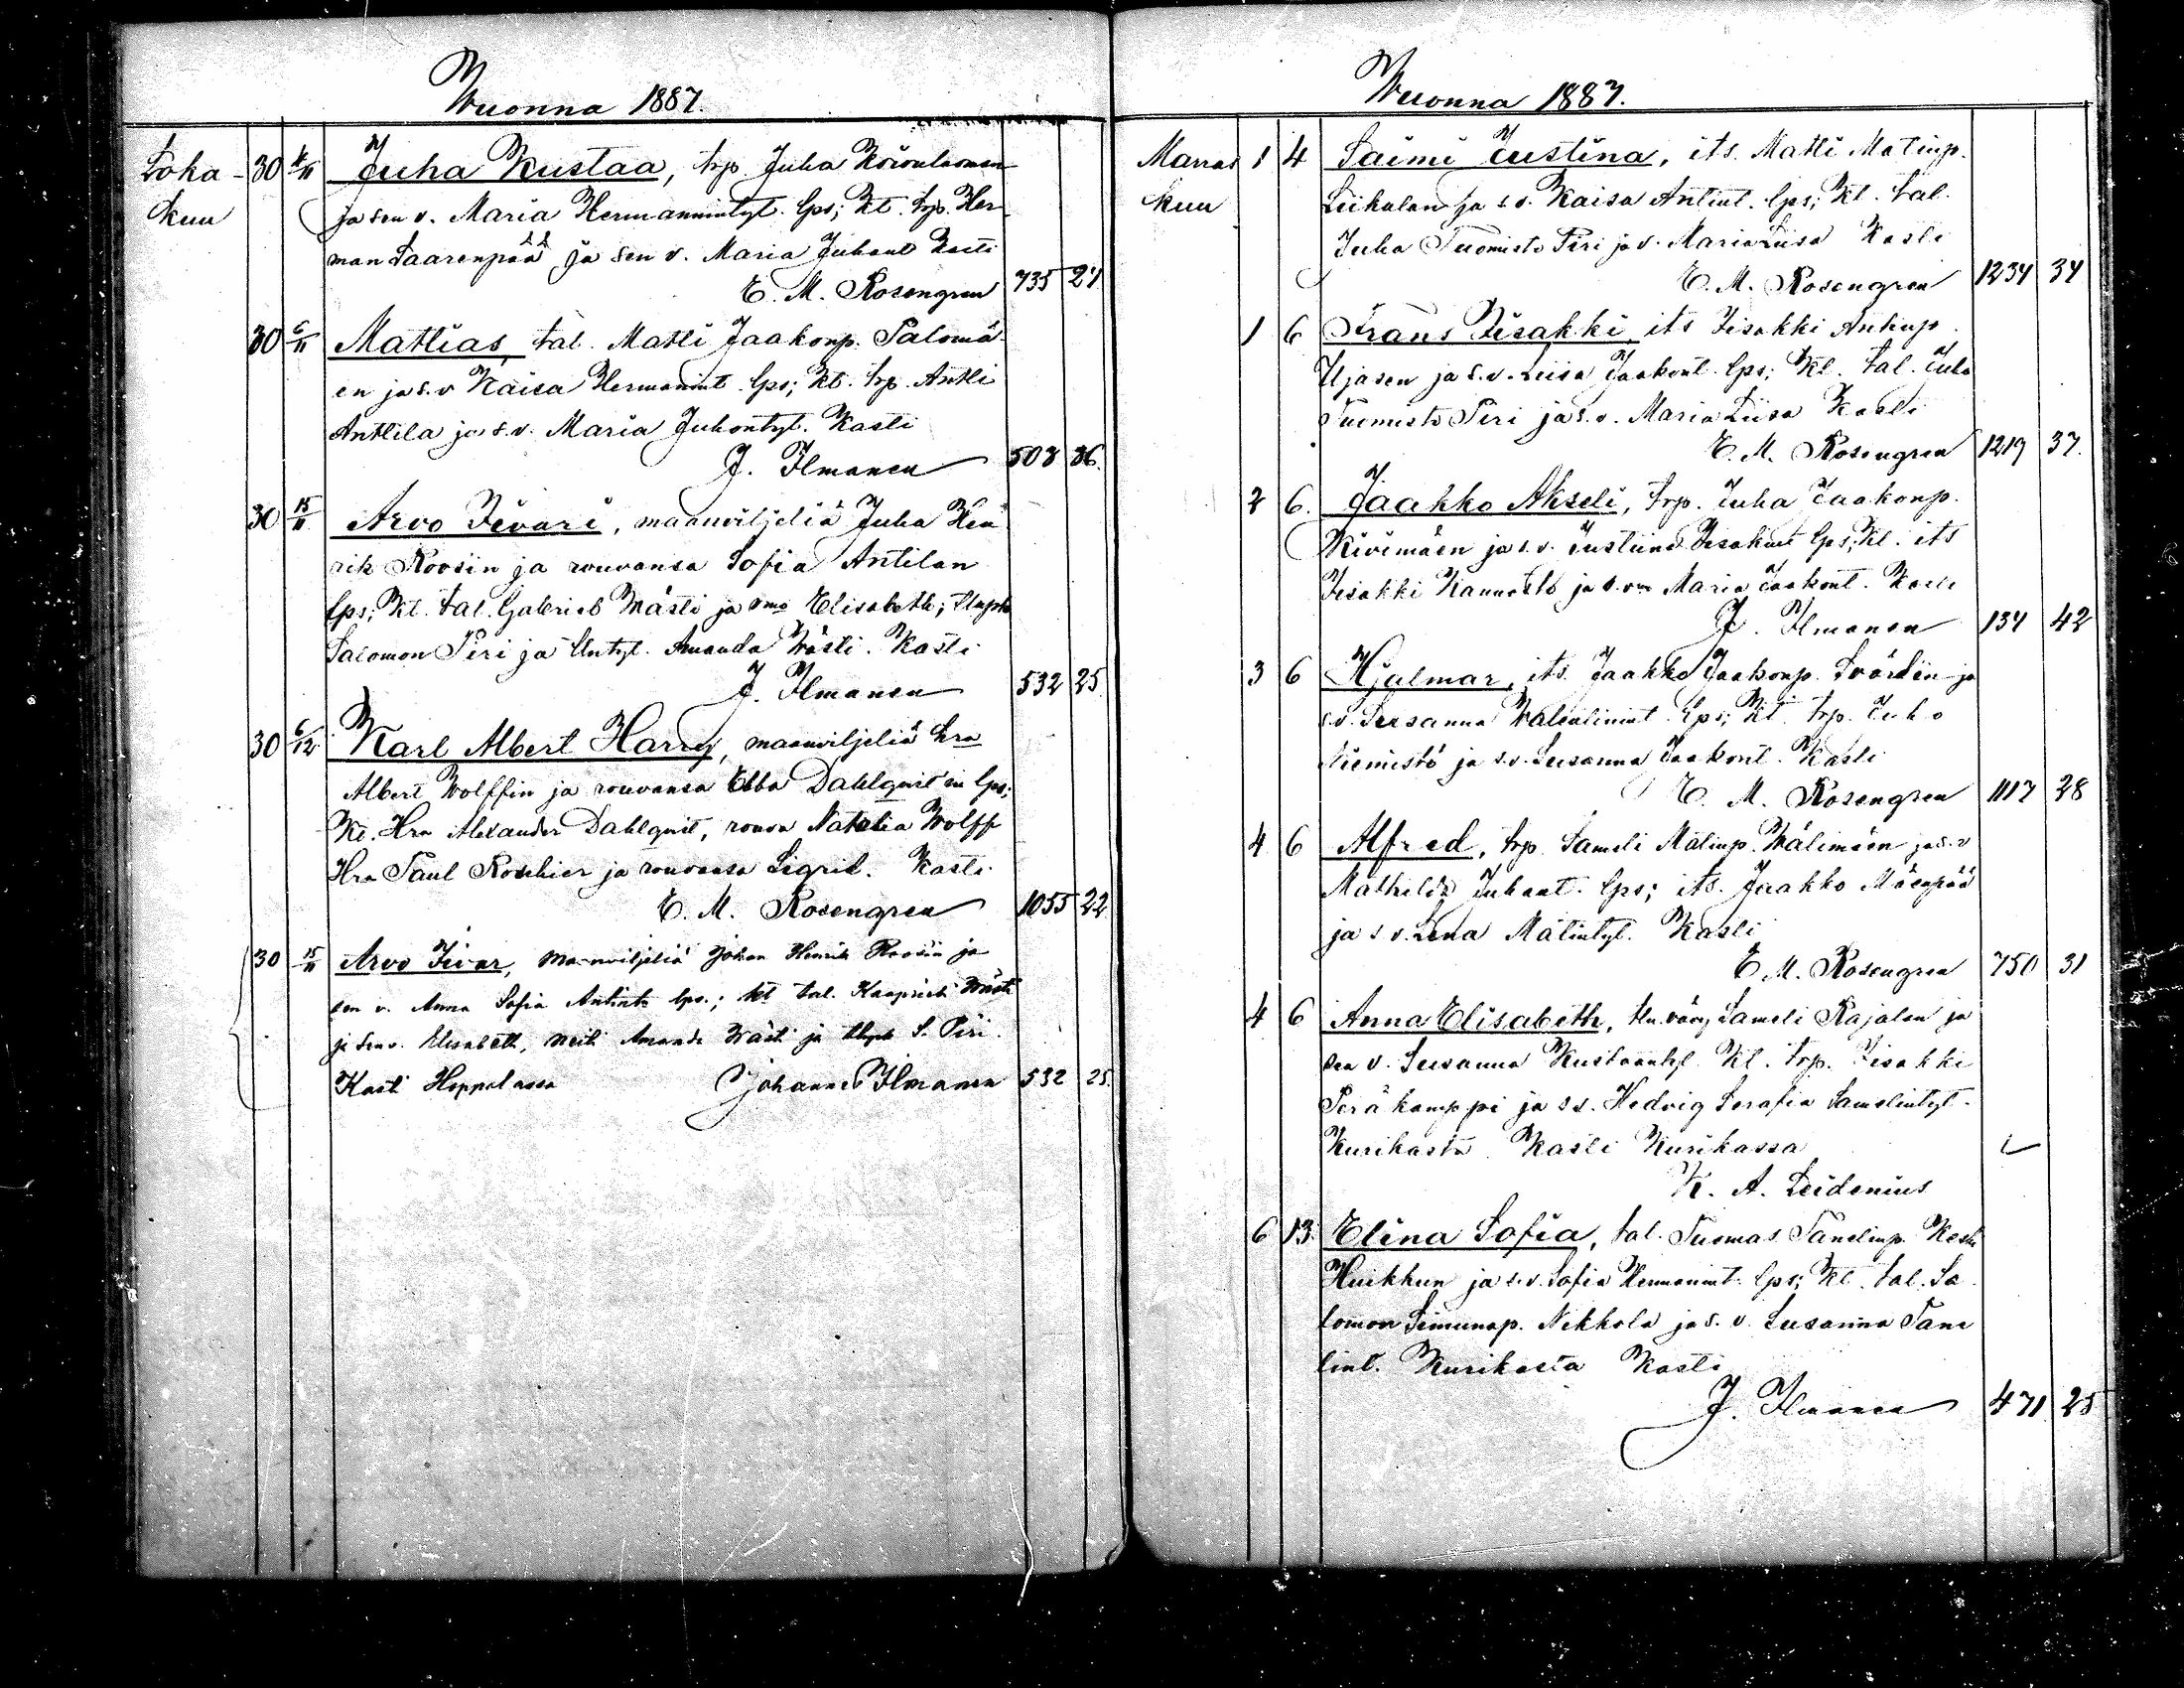 Wuonna 1887.
Loka- 30 Juha Kustaa, trp. Juha
kuu ja sen v. Maria Hermannintyt. lps; Kt. trp. Her
man Saarenpää ja sen v. Maria Juhant Kasti
E. M. Rosengren 735 27
30 6/11 Mattias, tal. Matti Jaakonp. Palomä
en ja s. v Kaisa Hermannint. lps; Kt. trp. Antti
Anttila ja s. v. Maria Juhontyt. Kasti
J. Ilmanen 503 36.
30 15/11 Arvo Iivari, maanviljeliä Juha Hen
rik Roosin ja rouvansa Sofia Antilan
lps; Kt. tal. Gabriel Wästi ja Elisabeth;
Salomon Piri ja Amanda Wästi. Kasti
J. Ilmanen 532 25.
30 6/12 Karl Albert Harry, maanviljeliä hra
Albert Wolffin ja rouvansa Ebba Dahlqvist'in lps;
Kt. Hra Alexander Dahlqvist, rouva Natalia Wolff
Hra Paul Roschier ja rouvansa Sigrid. Kasti
E. M. Rosengren 1055 22
30 15/11 Arvo Iivar, Maanviljeliä Johan Henrik Roosin ja
sen v. Anna Sofia Antint. lps.; kt tal. Kaaprieli Wästi
ja sen v. Elisabeth, neiti Amanda Wästi ja S. Piri.
Kasti Heppolassa Johannes Ilmanen 532 25.
Wuonna 1887.
Marras 1 4 Saimi Justina, its. Matti Matinp.
kuu Liikalan ja s. v. Kaisa Antint. lps; Kt. tal.
Juha Tuomisto Piri ja v. Maria Liisa Kasti
E. M. Rosengren 1234 34
1 6 Frans Iisakki, its Iisakki Antinp.
Ujasen ja s. v. Liisa Jaakont. lps; Kt. tal. Juha
Tuomisto Piri ja s. v. Maria Liisa Kasti
E. M. Rosengren 1219 37.
2 6. Jaakko Akseli, trp. Juha Jaakonp.
Kivimäen ja s. v. Justiina Iisakint lps; Kt. its
Iisakki Kannosto ja s. v. Maria Jaakont. Kasti
J. Ilmanen 134 42
3 6 Hjalmar, its. Jaakko Jaakonp. Svärdin ja
s. v. Susanna Walentinint. lps; Kt. trp. Juho
Niemistö ja s. v. Susanna Jaakont. Kasti
E. M. Rosengren 1117 28
4 6 Alfred, trp. Sameli Matinp. Wälimäen ja s. v
Mathilda Juhant. lps; its. Jaakko Mäenpää
ja s. v. Lena Matintyt. Kasti
E. M. Rosengren 750 31
4 6 Anna Elisabeth, Sameli Rajalan ja
sen v. Susanna Kustaantyt. Kt. trp. Iisakki
Peräkamppi ja s v. Hedvig Serafia Samelintyt.
Kurikasta. Kasti Kurikassa
K. A. Leidenius
6 13 Elina Sofia, tal. Tuomas Tanelinp. Keski
Huikkun ja s. v. Sofia Hermanint. lps; Kt. tal. Sa
lomon Simunap. Nikkola ja s. v. Susanna Tane
lint. Kurikasta Kasti
J. Ilmanen 471 25